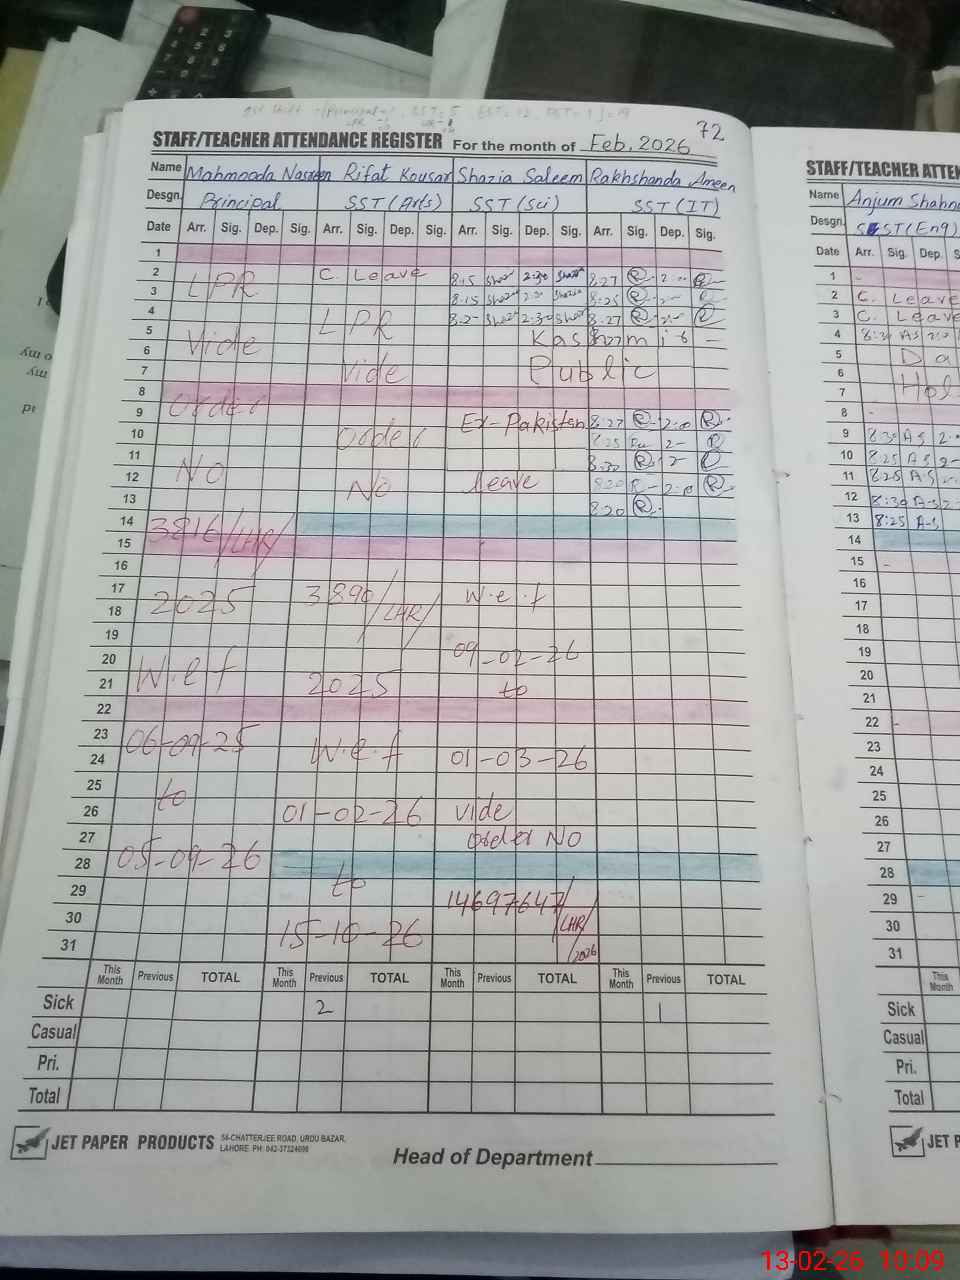 72
STAFF/TEACHER ATTENDANCE REGISTER For the month of Feb, 2026
Name Mahmooda Nasreen Rifat Kousar Shazia Saleem Rakhshanda Ameen
Desgn. Principal SST (Arts) SST (Sci) SST (IT)
Date Arr. Sig. Dep. Sig. Arr. Sig. Dep. Sig. Arr. Sig. Dep. Sig. Arr. Sig. Dep. Sig.
1
2 LPR C. Leave 8:15 2:30 8:27
3 8:15 8:25
4 LPR 2:30 8:27
5 Vide Kashmir
6
7 Vide Public
8
9 Order Ex-Pakistan 8:27 2:0
10 Order 8:25
11
12 NO NO leave 8:20 2:0
13 8:20
14 3816/LHR/
15
16
17 2025 3890/LHR/ W.e.f
18
19 09-02-26
20 W.e.f
21 2025 to
22
23 06-09-25 W.e.f
24 01-03-26
25 to
26 01-02-26 vide
27 order NO
28 05-09-26
29 to 14697647/LHR/2026
30 15-10-26
31
This Month Previous TOTAL This Month Previous TOTAL This Month Previous TOTAL This Month Previous TOTAL
Sick 2 1
Casual
Pri.
Total
JET PAPER PRODUCTS 56-CHATTERJEE ROAD, URDU BAZAR,
LAHORE. PH: 042-37324698
Head of Department
STAFF/TEACHER ATTEN
Name Anjum Shahn
Desgn. SST (Eng)
Date Arr. Sig. Dep. S
1 -
2 C. Leave
3 C. Leave
4 8:30 AS
5 Da
6
7 Hol
8 -
9 8:30 AS 2
10 8:25 AS 2-
11 8:25 A.S
12 8:30 A-S 2
13 8:25 A-S
14
15 -
16
17
18
19
20
21
22 -
23
24
25
26
27
28
29 -
30
31
This Month
Sick
Casual
Pri.
Total
JET P
13-02-26 10:09